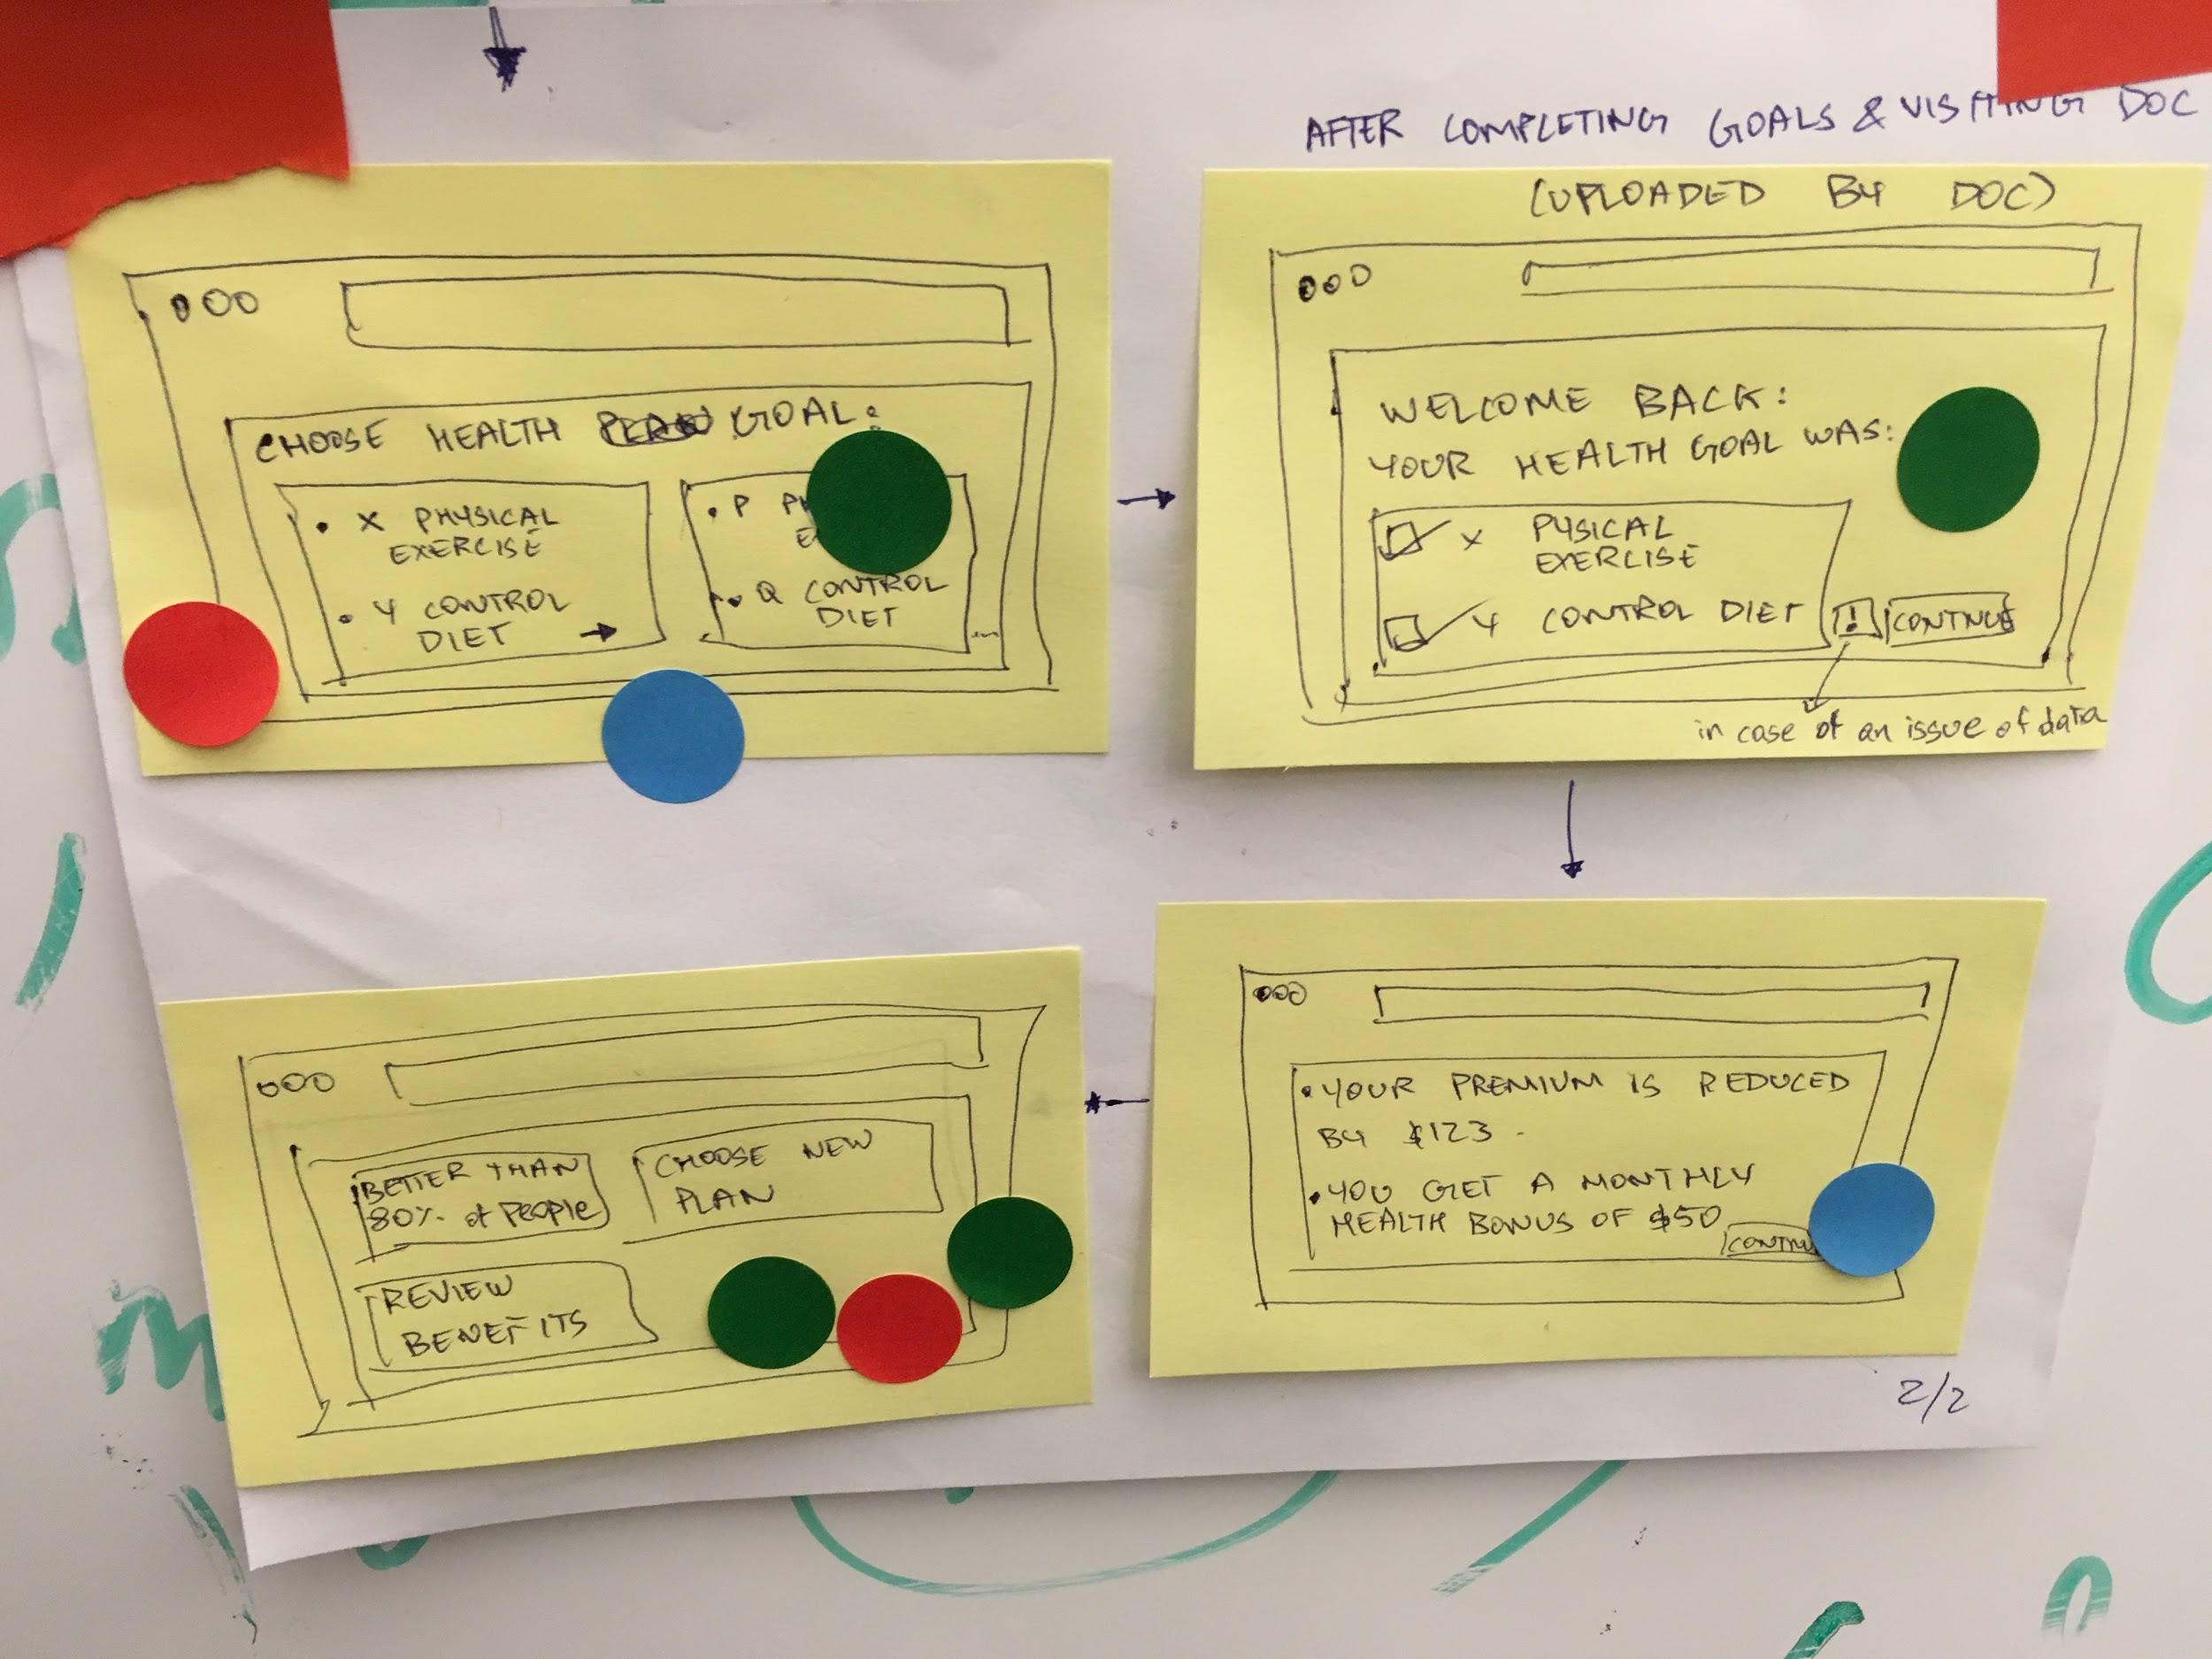 AFTER COMPLETING GOALS & VISITING DOC
(UPLOADED BY DOC)
CHOOSE HEALTH GOAL:
• X PHYSICAL
EXERCISE
• Y CONTROL
DIET
• P
• Q CONTROL
DIET
WELCOME BACK:
YOUR HEALTH GOAL WAS:
X PYSICAL
EXERCISE
Y CONTROL DIET
! CONTINUE
in case of an issue of data
• YOUR PREMIUM IS REDUCED
BY $123.
• YOU GET A MONTHLY
HEALTH BONUS OF $50
BETTER THAN
80% of People
CHOOSE NEW
PLAN
REVIEW
BENEFITS
2/2